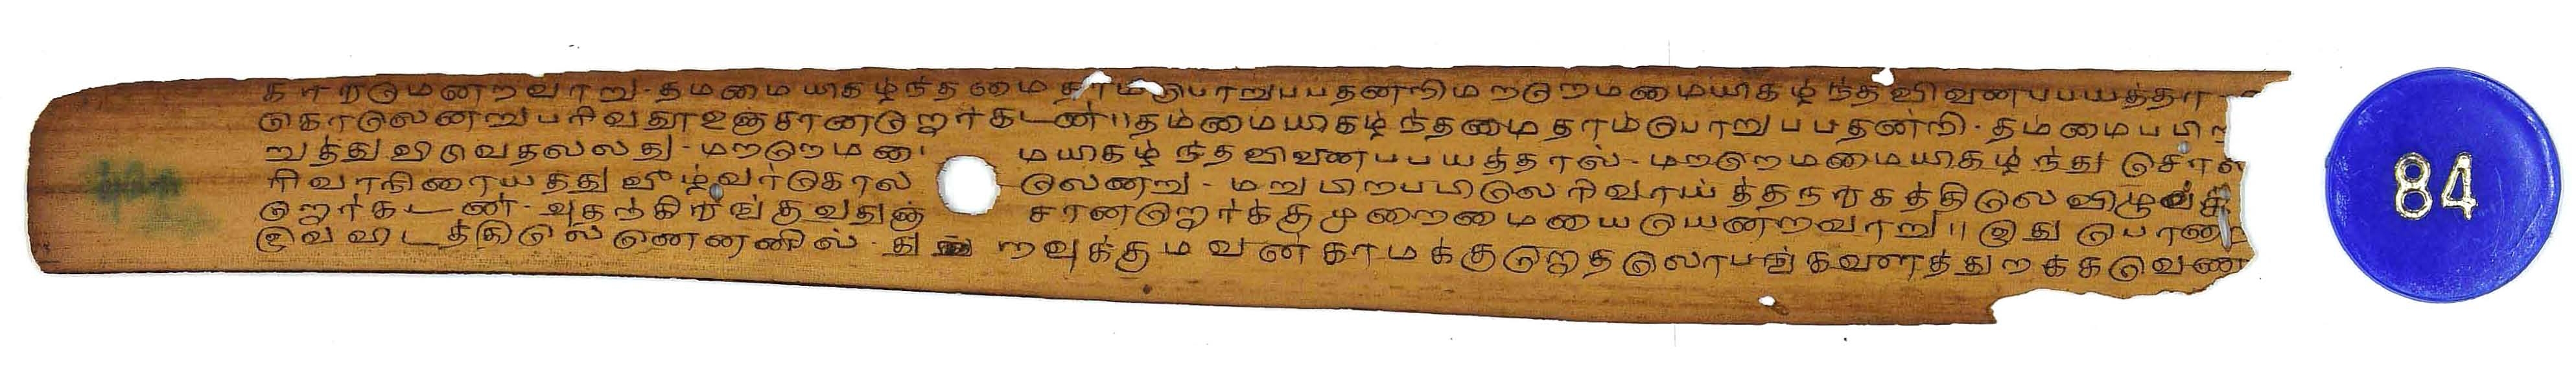 காறடுமனறவாறு-தமமையிகழ்ந்தமை தாமபொறுபபதனறிமறறெறமமையிகழ்ந்தவிவனபபயத்தா
கொலெனறுபரிவதூஉஞ்சானறோர்கடண்॥தம்மையிகழ்ந்தமை தாம்பொறுபபதன்றி-தம்மைபபிற
றுத்துவிடுவதலலது-மறறெறமமை மயிகழ்ந்தவிவனபபயத்தால்-மறறெறமமையிகழ்ந்து சொல
ரிவாநிரையத்து வீழ்வர்கொல லெனறு-மறுபிறபபிலெரிவாய்த்தநரகத்திலே விழுவர்
றோர்கடண்-அதற்கிரங்குவதுஞ் சானறோர்க்குமுறைமையையெயன்றவாறு॥இது பொறை
இவவிடத்திலே ணெனனில்-து றவுக்குமவன்காமக்குரோதலோபங்களைத்துறக்கவேண
84